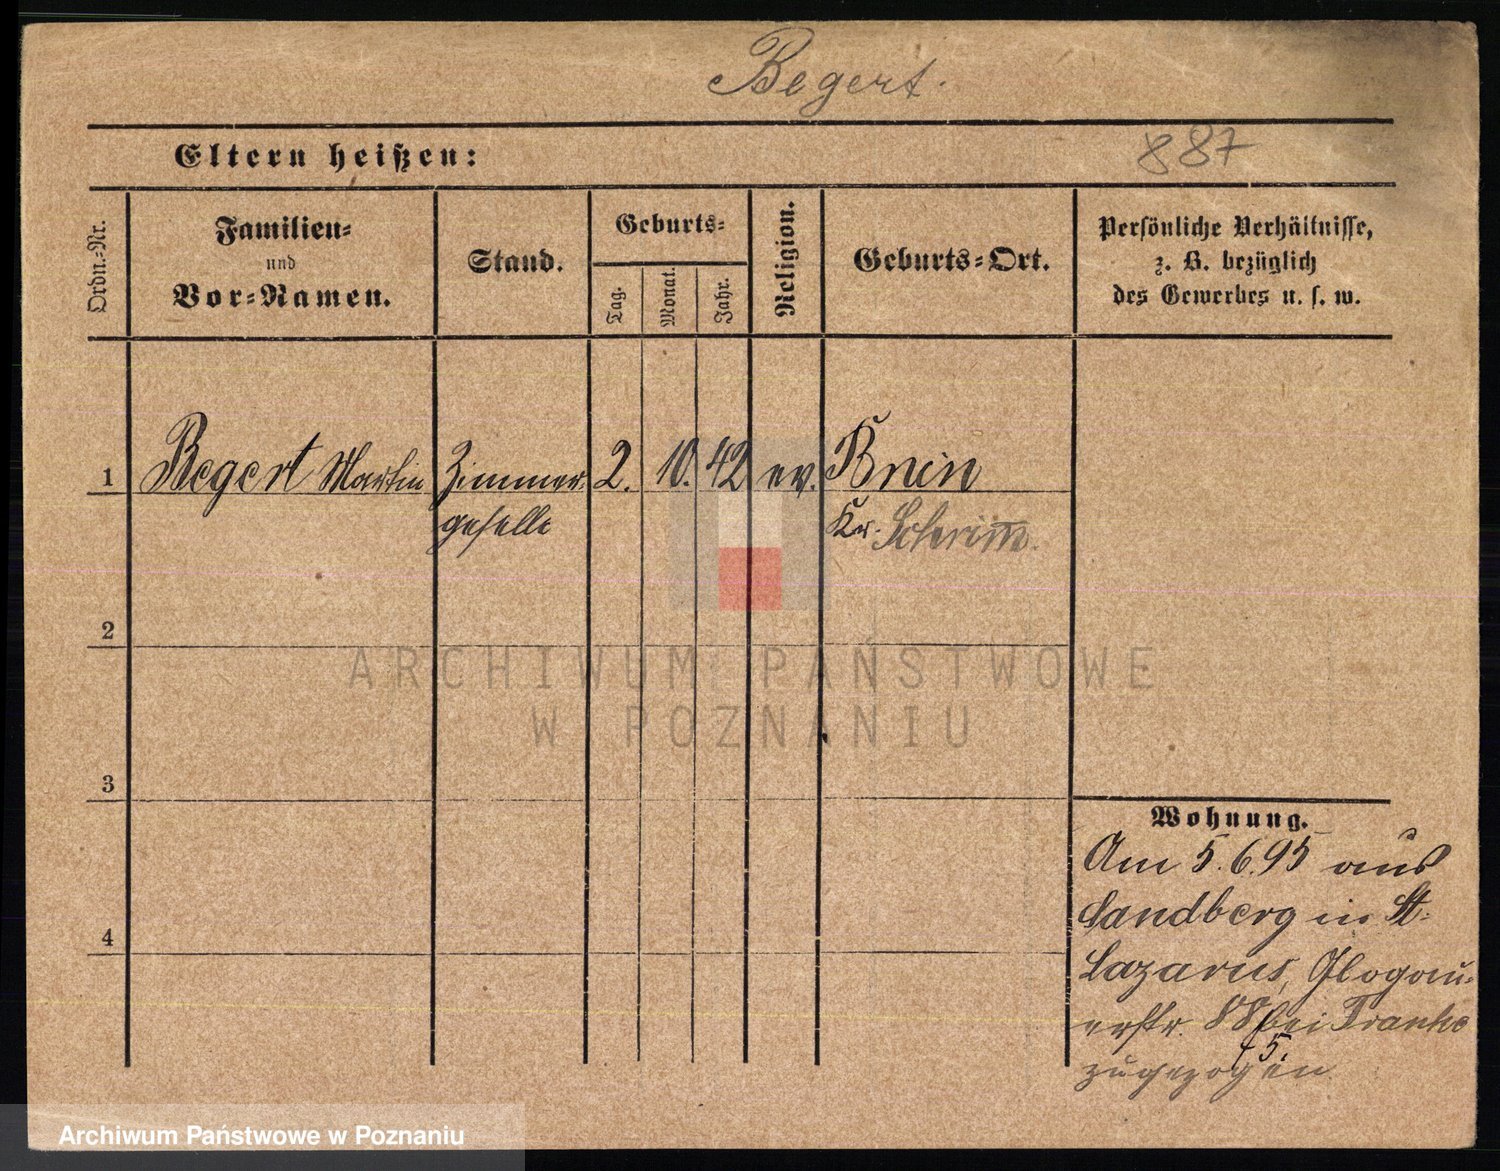 Begert.
Eltern heißen:
887
Ordn.-Nr.
Familien-
und
Vor-Namen.
Stand.
Geburts-
Tag.
Monat.
Jahr.
Religion.
Geburts-Ort.
Persönliche Verhältnisse,
z. B. bezüglich
des Gewerbes u. s. w.
1 Begert Martin Zimmer- 2. 10. 42 ev. Bnin
geselle Kr. Schrim.
2
ARCHIWUM PAŃSTWOWE
W POZNANIU
3
Wohnung.
Am 5.6.95 aus
Sandberg in St.
4
Lazarus, Glogau-
erstr. 88 bei Franke
5.
zugezogen
Archiwum Państwowe w Poznaniu